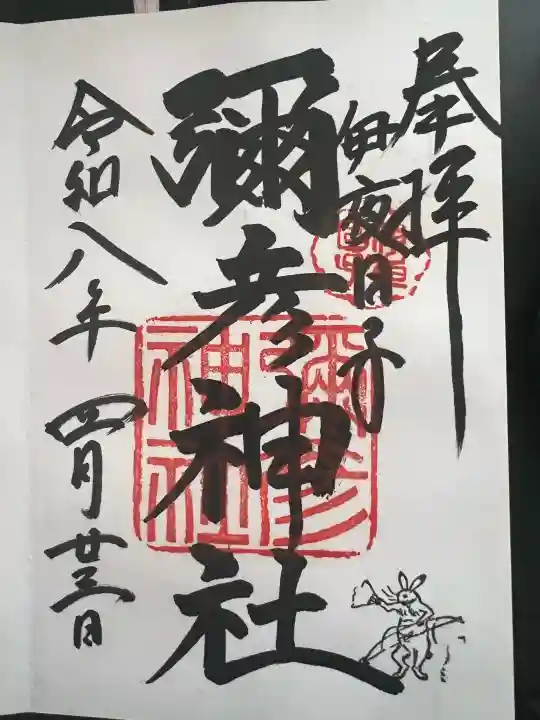 奉拝
伊夜日子
彌彦神社
彌彦神社
令和八年四月廿三日